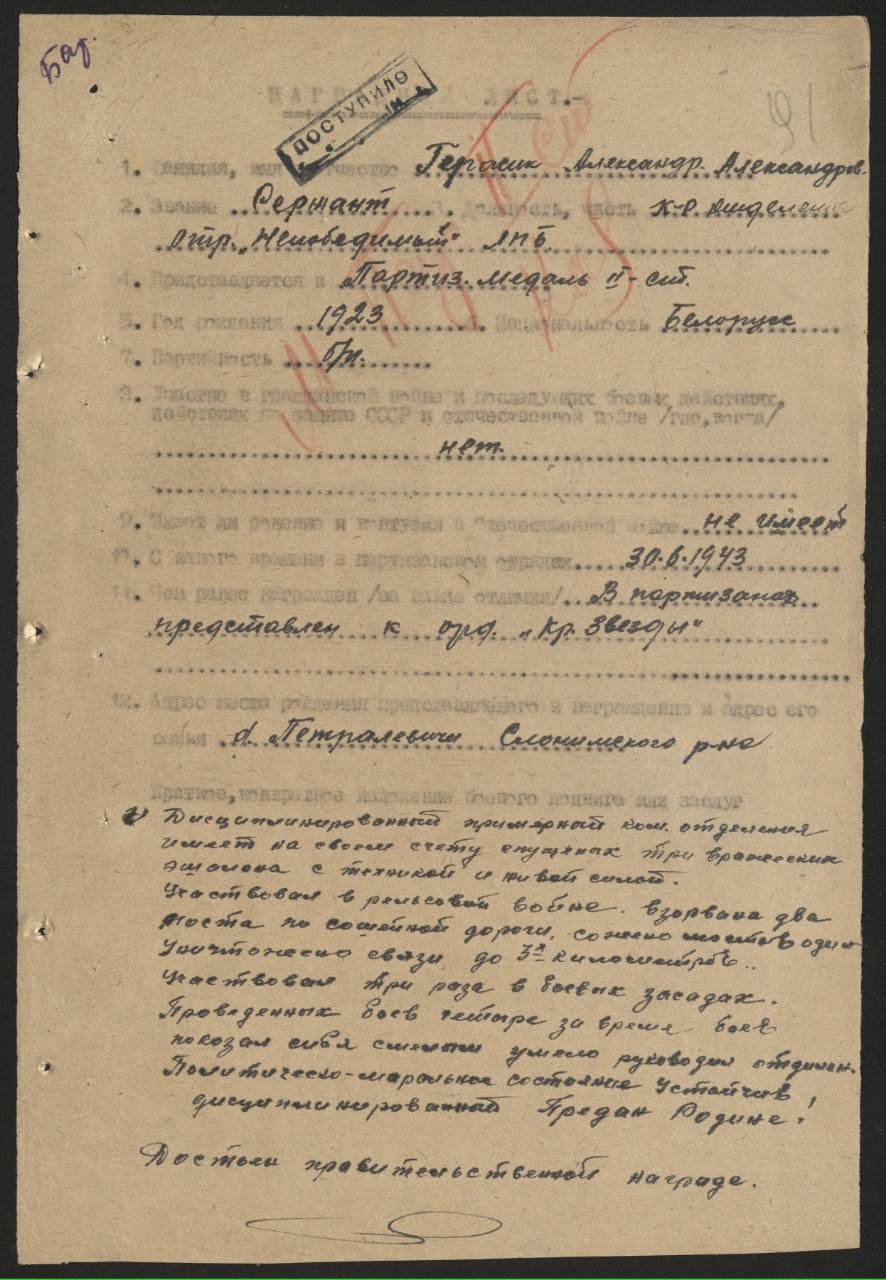 Бар.
НАГРАДНОЙ ЛИСТ.-
ПОСТУПИЛО
191
1. Фамилия, имя отчество Герасик Александр. Александров.
2. Звание Сержант 3. Должность, часть к-р отделения
отр. „Непобедимый" ЛПБ
4. Представляется к Партиз. медаль II-ст.
5. Год рождения 1923 6. Национальность Белорусс
7. Партийность б/п.
8. Участие в гражданской войне и последующих боевых действиях,
действиях по защите СССР и отечественной войне /где, когда/
нет.
9. Имеет ли ранение и контузии в Отечественной войне не имеет
10. С какого времени в партизанском отряде 30.6.1943
11. Чем ранее награжден /за какие отличия/ В партизанах
представлен к орд. „Кр. Звезды"
12. Адрес места рождения представляемого к награждению и адрес его
семьи д. Петралевичи Слонимского р-на
Краткое, конкретное изложение боевого подвига или заслуг
Дисциплинированный примерный ком. отделения
имеет на своем счету спущеных три вражеских
эшалона с техникой и живой силой.
Участвовал в рельсовой войне. взорвана два
моста по сошейной дороги, сожено мостов один
Уничтожено связи до 3х километров.
Участвовал три раза в боевых засадах.
Проведенных боев четыре за время боев
показал себя смелым умело руководил отделен.
Политическо-моральное состояние устойчив
дисциплинированный Предан Родине!
Достоин правительственной награде.